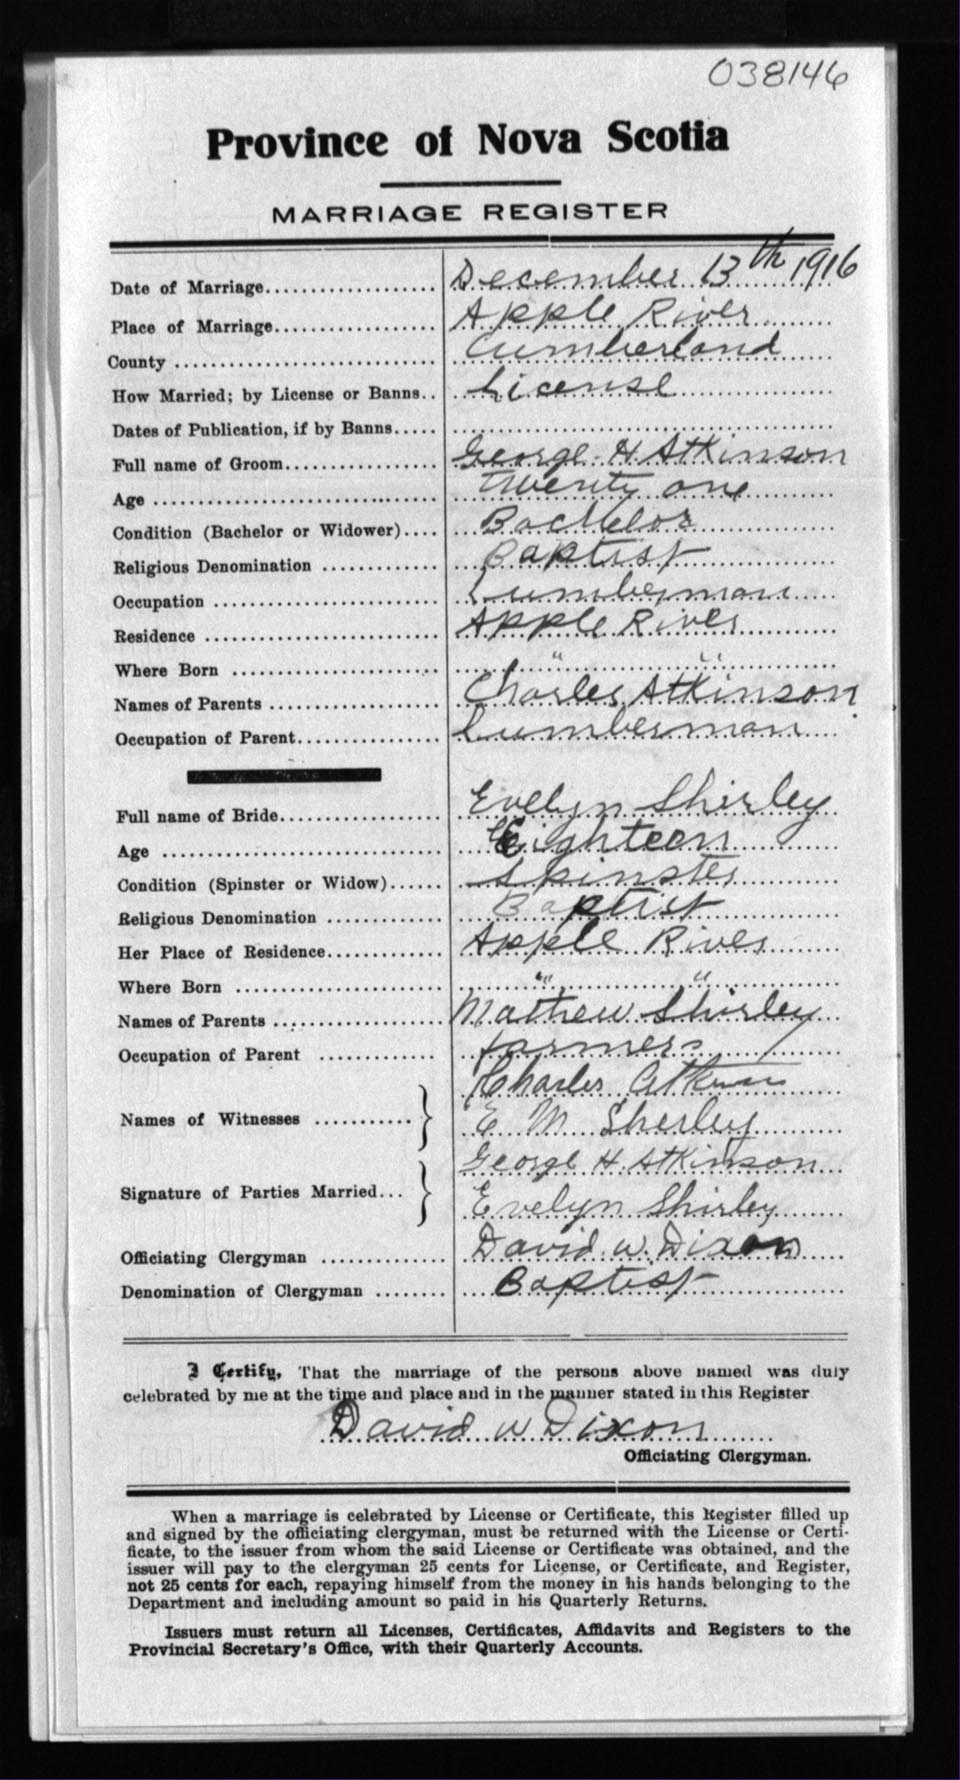 038146
Province of Nova Scotia
MARRIAGE REGISTER
Date of Marriage................... December 13th 1916
Place of Marriage.................. Apple River
County ............................. Cumberland
How Married; by License or Banns.. License
Dates of Publication, if by Banns.....
Full name of Groom................. George H Atkinson
Age ................................ twenty one
Condition (Bachelor or Widower).... Bachelor
Religious Denomination ............. Baptist
Occupation ......................... Lumberman
Residence .......................... Apple River
Where Born ......................... " "
Names of Parents ................... Charles Atkinson
Occupation of Parent................ Lumberman
Full name of Bride.................. Evelyn Shirley
Age ................................ Eighteen
Condition (Spinster or Widow)...... Spinster
Religious Denomination ............. Baptist
Her Place of Residence............. Apple River
Where Born ......................... " "
Names of Parents ................... Mathew Shirley
Occupation of Parent ............. farmers
Names of Witnesses ........... } Charles Atkinson
E M Sherley
Signature of Parties Married... } George H Atkinson
Evelyn Shirley
Officiating Clergyman ............. David W. Dixon
Denomination of Clergyman ........ Baptist
I Certify, That the marriage of the persons above named was duly
celebrated by me at the time and place and in the manner stated in this Register
David W Dixon
Officiating Clergyman.
When a marriage is celebrated by License or Certificate, this Register filled up
and signed by the officiating clergyman, must be returned with the License or Certi-
ficate, to the issuer from whom the said License or Certificate was obtained, and the
issuer will pay to the clergyman 25 cents for License, or Certificate, and Register,
not 25 cents for each, repaying himself from the money in his hands belonging to the
Department and including amount so paid in his Quarterly Returns.
Issuers must return all Licenses, Certificates, Affidavits and Registers to the
Provincial Secretary's Office, with their Quarterly Accounts.